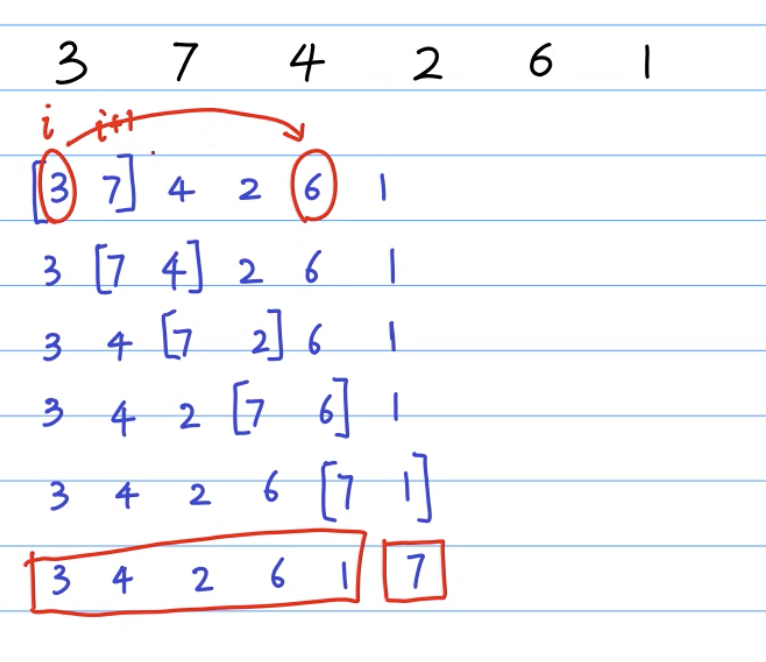 3 7 4 2 6 1
i i+1
[3 7] 4 2 6 1
3 [7 4] 2 6 1
3 4 [7 2] 6 1
3 4 2 [7 6] 1
3 4 2 6 [7 1]
3 4 2 6 1 7